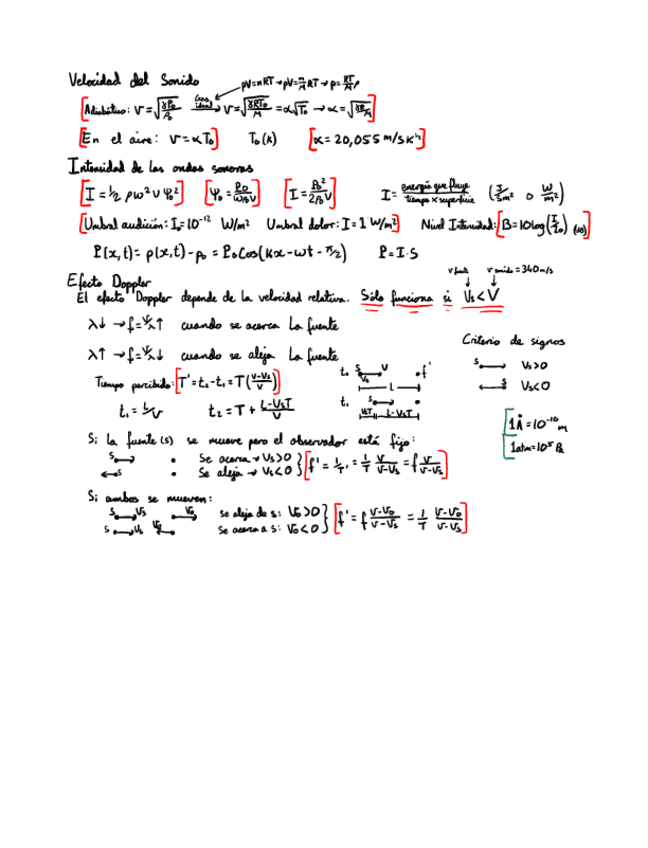 Velocidad del Sonido
pV=nRT → pV = m/M RT → p = RT/M ρ
Adiabático: v = √(γP₀/ρ₀) (gas ideal) → v = √(γRT₀/M) = α√T₀ → α = √(γR/M)
En el aire: v = α√T₀   T₀(K)   α = 20,055 m/s K^½
Intensidad de las ondas sonoras
I = ½ ρω²v Ψ₀²   Ψ₀ = P₀/ωρv   I = P₀²/2ρ₀v   I = energía que fluye/tiempo × superficie (J/s m² o W/m²)
Umbral audición: I₀ = 10⁻¹² W/m²   Umbral dolor: I = 1 W/m²   Nivel Intensidad: B = 10 log(I/I₀) (dB)
P(x,t) = p(x,t) - p₀ = P₀ Cos(Kx - ωt - π/2)   P = I·S
Efecto Doppler
v fuente   v sonido = 340 m/s
El efecto Doppler depende de la velocidad relativa. Sólo funciona si Vs < V
λ↓ → f = v/λ ↑ cuando se acerca la fuente
Criterio de signos
λ↑ → f = v/λ ↓ cuando se aleja la fuente
S → Vs>0
t₀ S V Vs f'
L
S Vs<0
Tiempo percibido: T' = t₂ - t₁ = T((V-Vs)/V)
t₁ S
VsT L-VsT
t₁ = L/V   t₂ = T + (L-VsT)/V
1Å = 10⁻¹⁰ m
1atm = 10⁵ Pa
Si la fuente (s) se mueve pero el observador está fijo:
S → • Se acerca → Vs>0
S • Se aleja → Vs<0 } f' = 1/T' = 1/T V/(V-Vs) = f V/(V-Vs)
Si ambos se mueven:
S Vs V₀ se aleja de s: V₀>0
S Vs V₀ se acerca a s: V₀<0 } f' = f (V-V₀)/(V-Vs) = 1/T (V-V₀)/(V-Vs)